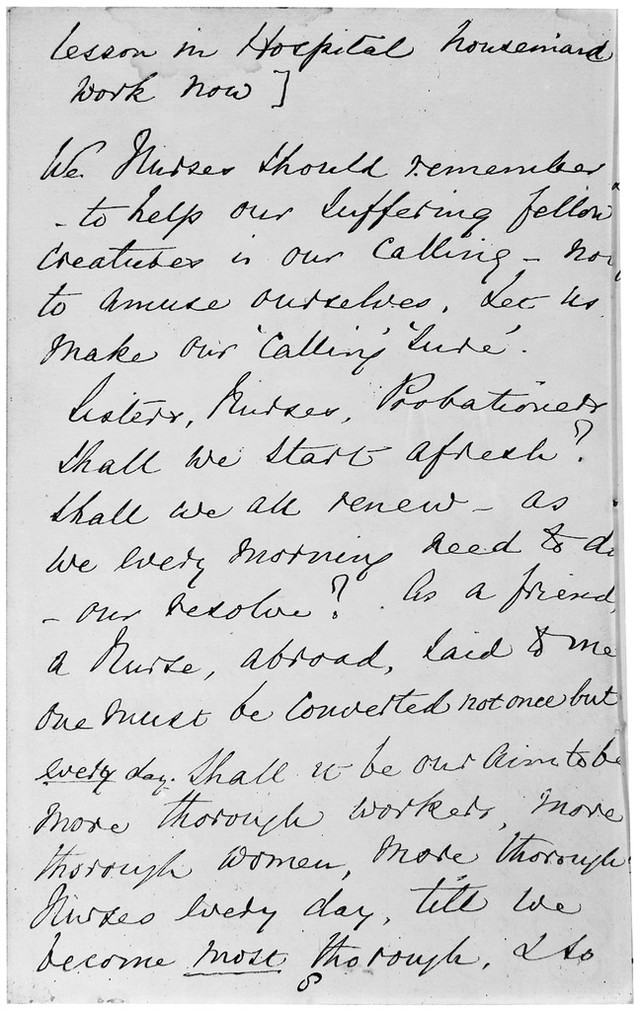 lesson in Hospital housemaid
work now]
We Nurses should remember
- to help our suffering fellow
creatures is our calling - not
to amuse ourselves. Let us
make our 'calling' 'sure'.
Sisters, Nurses, Probationers
shall we start afresh?
Shall we all renew - as
we every morning need to do
- our resolve? As a friend,
a Nurse, abroad, said to me
one must be converted not once but
every day. Shall it be our aim to be
more thorough workers, more
thorough women, more thorough
Nurses every day, till we
become most thorough, & so